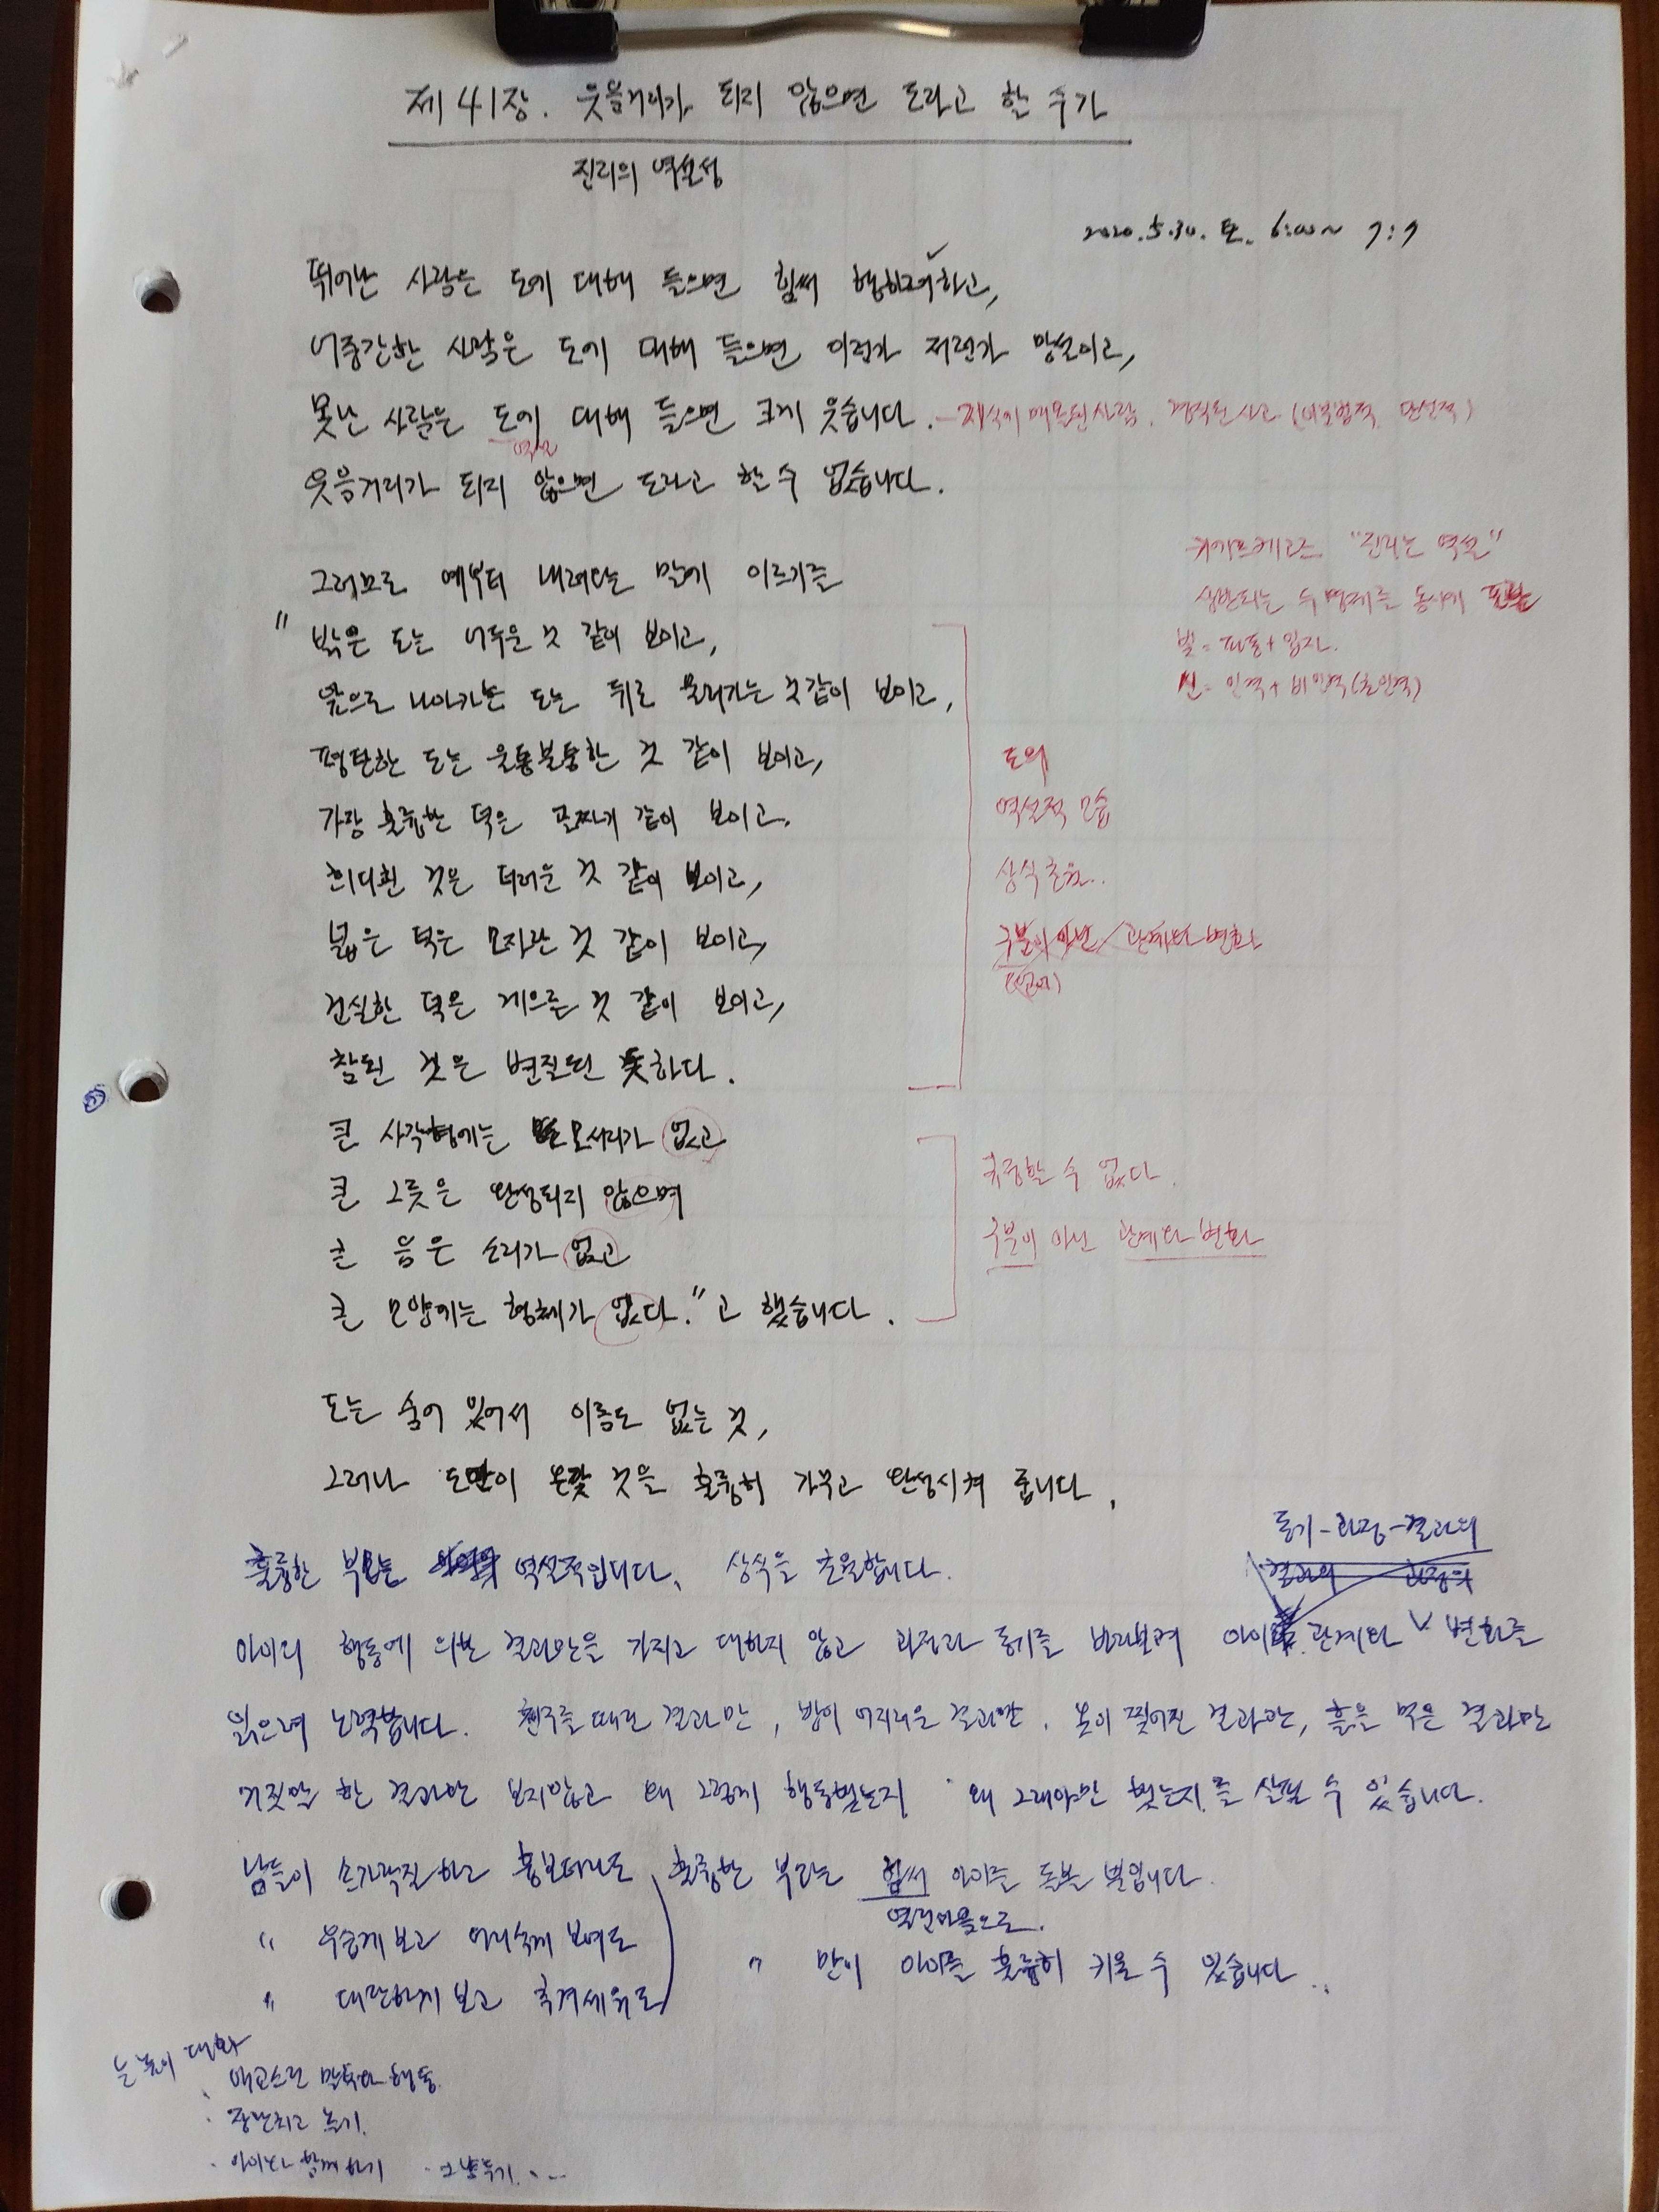 제 41장. 웃음거리가 되지 않으면 도라고 할 수가
진리의 역설성
2020. 5. 30. 토. 6:00~ 7:7
뛰어난 사람은 도에 대해 들으면 힘써 행하려하고,
어중간한 사람은 도에 대해 들으면 이런가 저런가 망설이고,
못난 사람은 도에 대해 들으면 크게 웃습니다. - 지식에 매몰된 사람. 경직된 사고 (이분법적, 단선적)
역설
웃음거리가 되지 않으면 도라고 할 수 없습니다.
키에르케고르 "진리는 역설"
그러므로 예부터 내려오는 말에 이르기를
상반되는 두 명제를 동시에 포용
"밝은 도는 어두운 것 같이 보이고,
빛 = 파동 + 입자.
앞으로 나아가는 도는 뒤로 물러가는 것같이 보이고,
신 = 인격 + 비인격(초인격)
평탄한 도는 울퉁불퉁한 것 같이 보이고,
도의
가장 훌륭한 덕은 골짜기 같이 보이고,
역설적 모습
희디흰 것은 더러운 것 같이 보이고,
상식 초월..
넓은 덕은 모자란 것 같이 보이고,
구분이 아닌 관계와 변화
건실한 덕은 게으른 것 같이 보이고,
(언어)
참된 것은 변질된 듯하다.
큰 사각형에는 모서리가 없고
규정할 수 없다.
큰 그릇은 완성되지 않으며
구분이 아닌 관계와 변화
큰 음은 소리가 없고
큰 모양에는 형체가 없다."고 했습니다.
도는 숨어 있어서 이름도 없는 것,
그러나 도만이 온갖 것을 훌륭히 가꾸고 완성시켜 줍니다.
동기-과정-결과의
훌륭한 부모는 역설적입니다. 상식을 초월합니다.
결과의 과정의
아이의 행동에 의한 결과만을 가지고 대하지 않고 과정과 동기를 바라보며 아이 관계와 ∨ 변화를
읽으려 노력합니다. 친구를 때린 결과만, 방이 어지러운 결과만, 옷이 찢어진 결과만, 흙을 먹은 결과만
거짓말 한 결과만 보지않고 왜 그렇게 행동했는지 왜 그래야만 했는지를 살필 수 있습니다.
남들이 손가락질하고 흉보더라도 훌륭한 부모는 힘써 아이를 돌볼 뿐입니다.
열린마음으로.
" 우습게 보고 어리숙게 보여도
" 만이 아이를 훌륭히 키울 수 있습니다..
" 대단하게 보고 추켜세워도
눈높이 대화
· 애교스런 말투와 행동.
· 장난치고 놀기.
· 아이와 함께하기 · 그냥두기. · ...